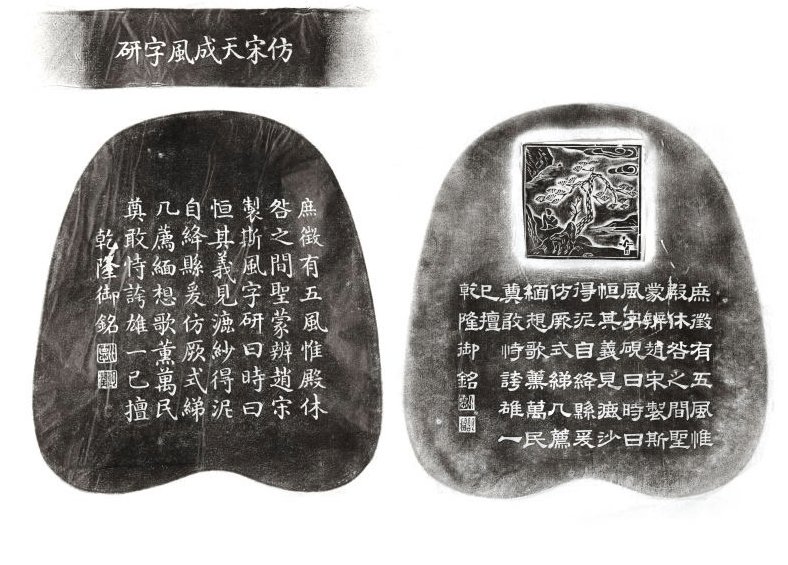 仿宋天成風字研
庶徵有五風惟殿休
咎之間聖蒙辨趙宋
製斯風字研曰時曰
恒其義見漉紗得泥
自絳縣爰仿厥式綈
几薦緬想歌薰萬民
奠敢恃誇雄一己擅
乾隆御銘
庶徵有五風惟
殿休咎之間聖
蒙辨趙宋製斯
風字硯曰時曰
恒其義見漉沙
得泥自絳縣爰
仿厥式綈几薦
緬想歌薰萬民
奠敢恃誇雄一
己擅
乾隆御銘